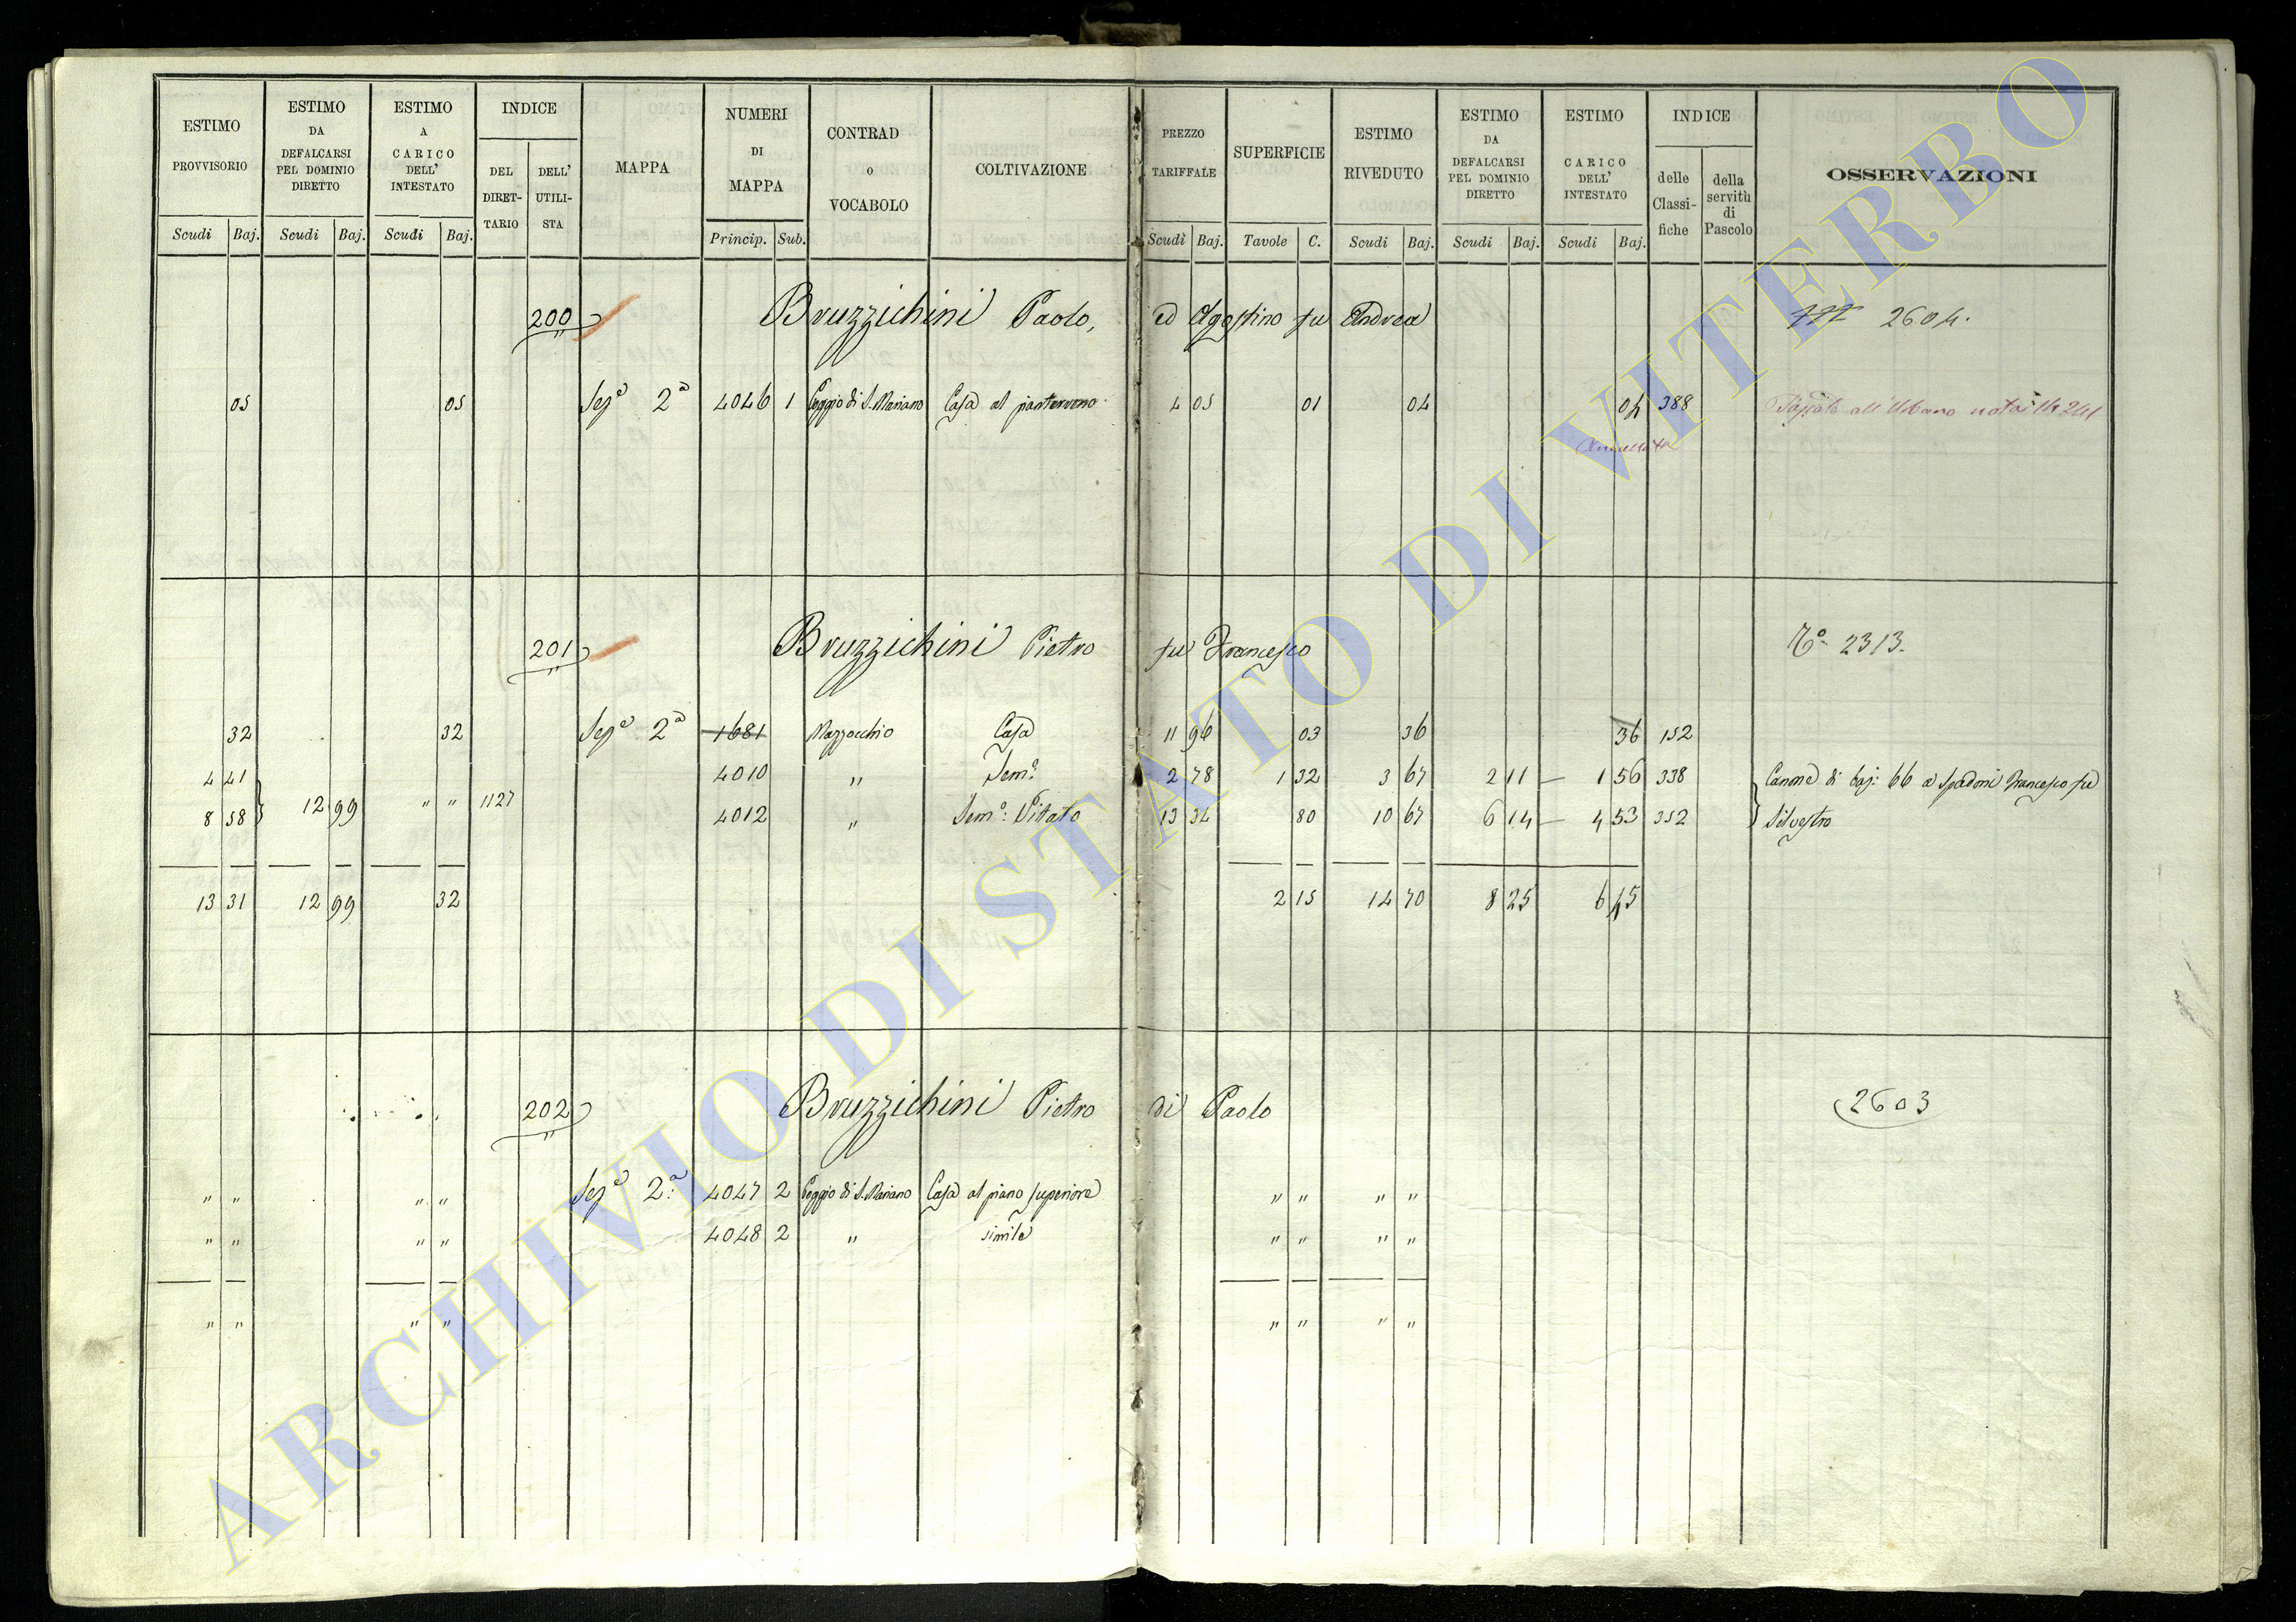 ESTIMO PROVVISORIO Scudi Baj.
ESTIMO DA DEFALCARSI PEL DOMINIO DIRETTO Scudi Baj.
ESTIMO A CARICO DELL' INTESTATO Scudi Baj.
INDICE DEL DIRET-TARIO DELL' UTILI-STA
MAPPA
NUMERI DI MAPPA Princip. Sub.
CONTRAD o VOCABOLO
COLTIVAZIONE
PREZZO TARIFFALE Scudi Baj.
SUPERFICIE Tavole C.
ESTIMO RIVEDUTO Scudi Baj.
ESTIMO DA DEFALCARSI PEL DOMINIO DIRETTO Scudi Baj.
ESTIMO CARICO DELL' INTESTATO Scudi Baj.
INDICE delle Classi-fiche della servitù di Pascolo
OSSERVAZIONI
200 Bruzzichini Paolo, ed Agostino fu Andrea 2604.
05 05 Sez.e 2a 4046 1 Poggio di S. Mariano Casa al pianterreno 4 05 01 04 04 388 Passato all'Urbano
Annullata
201 Bruzzichini Pietro fu Francesco No. 2313.
32 32 Sez.e 2a 1681 Mazzocchio Casa 11 96 03 36 36 152
4 41 4010 " Sem.o 2 78 1 32 3 67 2 11 — 1 56 338 Canone di baj: 66 a Spadoni Francesco fu
8 58 12 99 " " 1127 4012 " Sem.o: Vitato 13 34 80 10 67 6 14 — 4 53 352 Silvestro
13 31 12 99 32 2 15 14 70 8 25 6 45
202 Bruzzichini Pietro di Paolo 2603
" " " " Sez.e 2.a 4047 2 Poggio di S. Mariano Casa al piano superiore " " " "
" " " " 4048 2 " simile " " " "
" " " " " " " "
ARCHIVIO DI STATO DI VITERBO